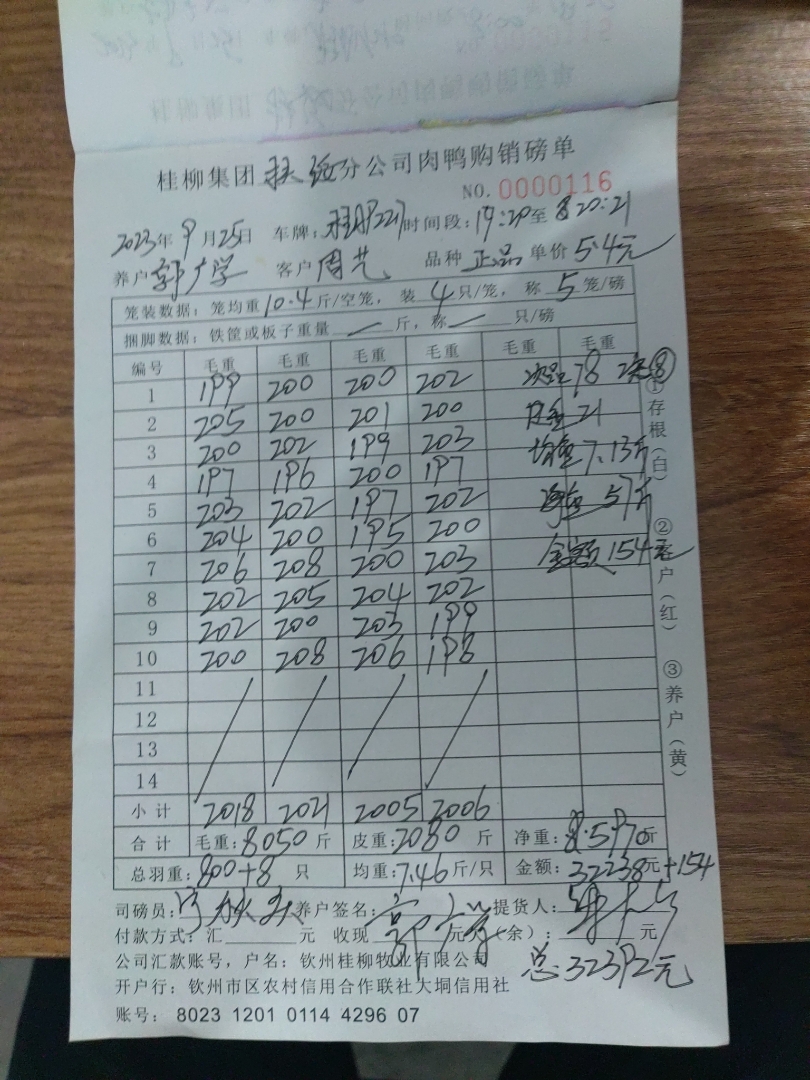 桂柳集团 扶绥 分公司肉鸭购销磅单
NO. 0000116
2023年 9月25日 车牌: 时间段:19:20至 20:21
养户 郭广学 客户 周艺 品种 正品 单价 5.4元
笼装数据:笼均重10.4斤/空笼,装 4 只/笼,称 5 笼/磅
捆脚数据:铁筐或板子重量 — 斤,称 — 只/磅
编号 毛重 毛重 毛重 毛重 毛重 毛重
1 199 200 200 202 78 8
2 205 200 201 200 皮重 21
3 200 202 199 203 均重 7.13斤
4 197 196 200 197
5 203 202 197 202 净重 57斤
6 204 200 195 200
7 206 208 200 203 金额 154元
8 202 205 204 202
9 202 200 203 199
10 200 208 206 198
11
12
13
14
小计 2018 2021 2005 2006
合计 毛重:8050斤 皮重:2080斤 净重:5970斤
总羽重:800+8 只 均重:7.46斤/只 金额:32238元+154
司磅员: 养户签名: 提货人:
付款方式:汇 元 收现 元欠(余): 元
公司汇款账号,户名:钦州桂柳牧业有限公司
总:32392元
开户行:钦州市区农村信用合作联社大垌信用社
账号: 8023 1201 0114 4296 07
①存根(白)
②客户(红)
③养户(黄)